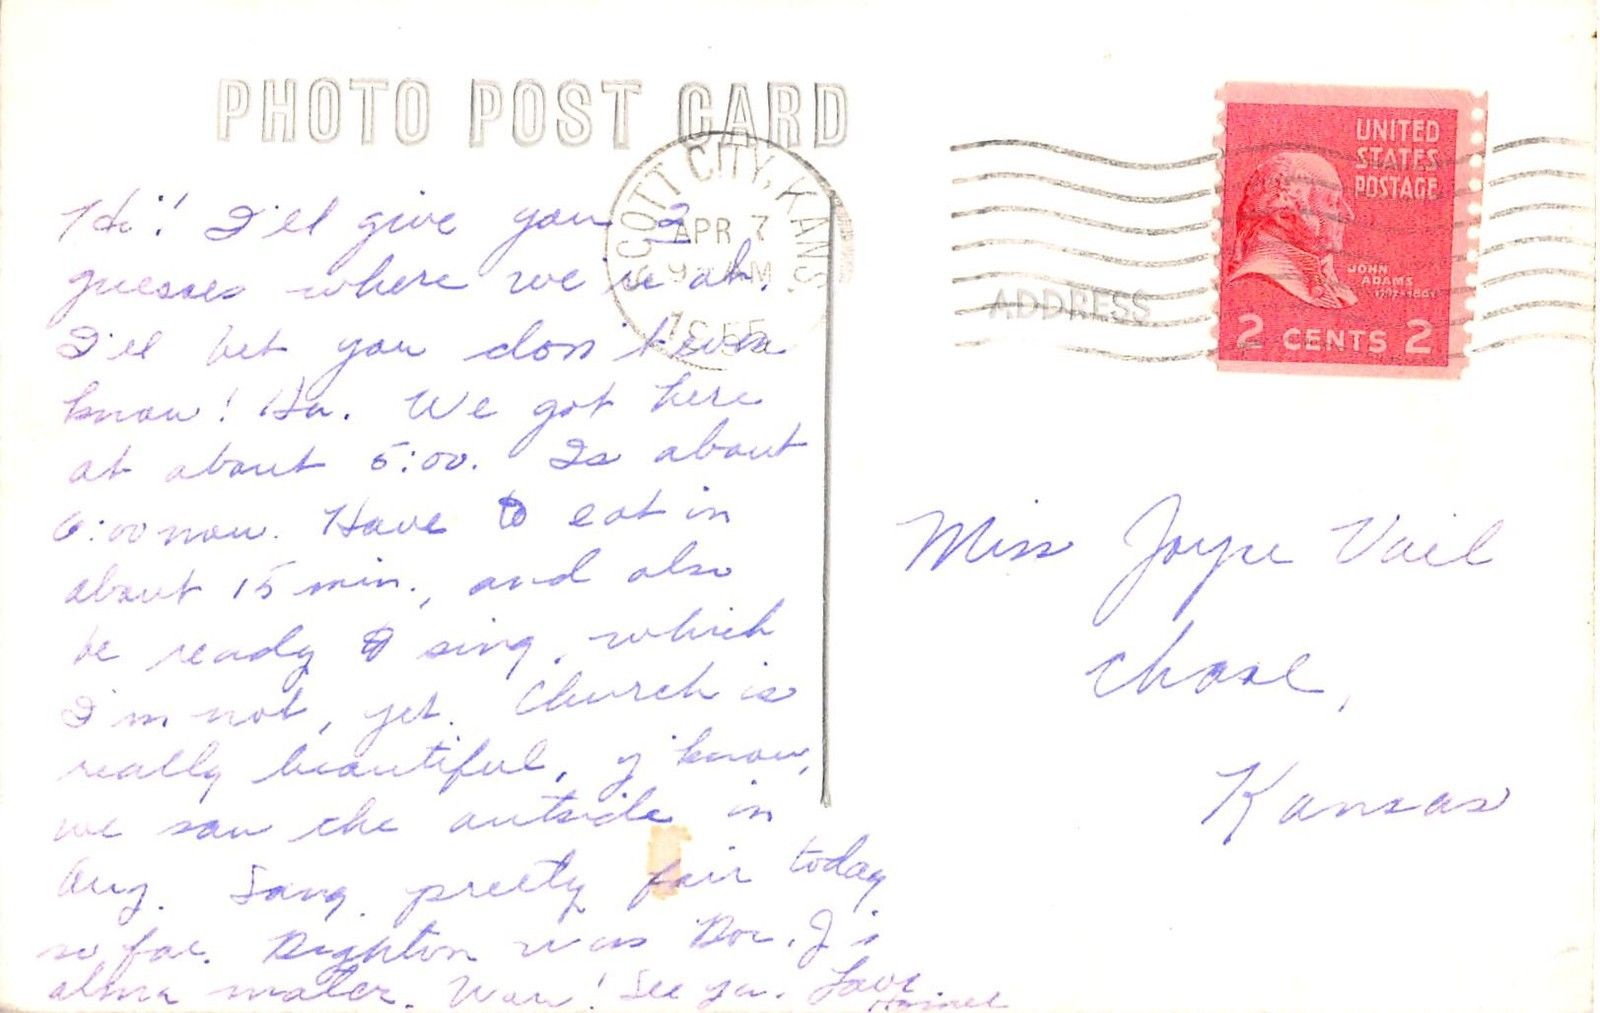 PHOTO POST CARD
SCOTT CITY, KANS.
APR 7
9 AM
1955
UNITED
STATES
POSTAGE
JOHN
ADAMS
1797-1801
2 CENTS 2
ADDRESS
Hi! I'll give you 3
guesses where we're at.
I'll bet you don't even
know! Ha. We got here
at about 5:00. Is about
6:00 now. Have to eat in
about 15 min., and also
be ready to sing, which
I'm not, yet. Church is
really beautiful, y'know,
we saw the outside in
Aug. Sang pretty fair today
so far. Dighton was J's
alma mater. Wow! See ya. Love
Miss Joyce Vail
Chase,
Kansas